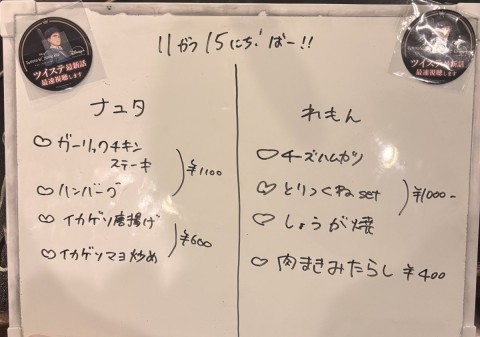 11がつ15にち!ばー!!
ツイステ最新話
最速視聴します
ツイステ最新話
最速視聴します
ナユタ
♡ ガーリックチキン
ステーキ
♡ ハンバーグ
¥1100
♡ イカゲソ唐揚げ
♡ イカゲソマヨ炒め
¥600
れもん
♡ チーズハムカツ
♡ とりつくねset
♡ しょうが焼
¥1000-
♡ 肉まきみたらし ¥400